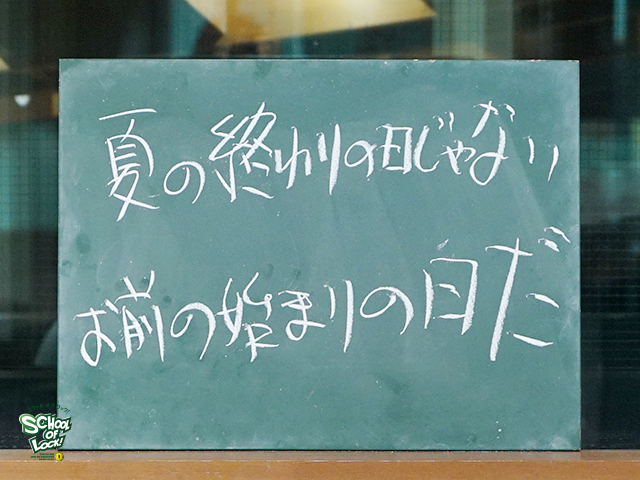 夏の終わりの日じゃない
お前の始まりの日だ
SCHOOL
OF
LOCK!